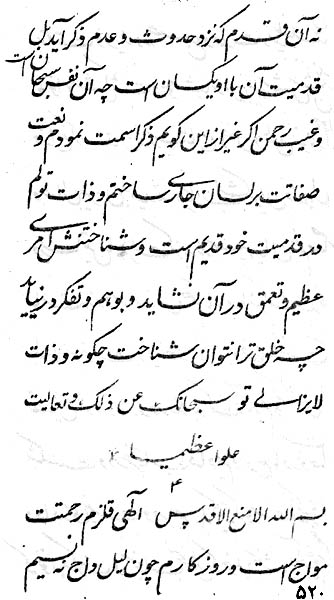 نه آن قدم که نزد حدوث و عدم ذکر آید بل
قدمیت آن با او یکسان است چه آن نفس سبحان است
و غیب رحمن اگر غیر از این گویم ذکر اسمت نمودم و نعت
صفاتت بر لسان جاری ساختم و ذات تو لم
در قدمیت خود قدیم است و شناختنش امری
عظیم و تعمق در آن نشاید و بوهم و تفکر در نیاید
چه خلق ترا نتوان شناخت چگونه و ذات
لایزالی تو سبحانک عن ذلک و تعالیت
علوا عظیما
۴
بسم الله الامنع الاقدس الهی قلزم رحمتت
مواج است و روز کارم چون لیل داج نه نسیم
۵۲۰